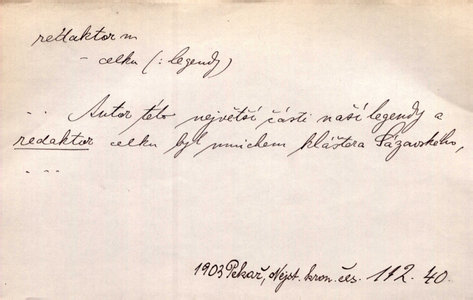 redaktor m
- celku (: legendy)
.. Autor této největší části naší legendy a
redaktor celku byl mnichem kláštera Sázavského,
...
1903 Pekař, Nejst. kron. čes. 112. 40.